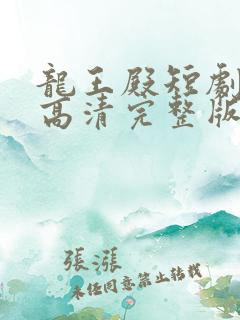 龍王殿短劇
高清完整版
張漲
未任同意禁止转载